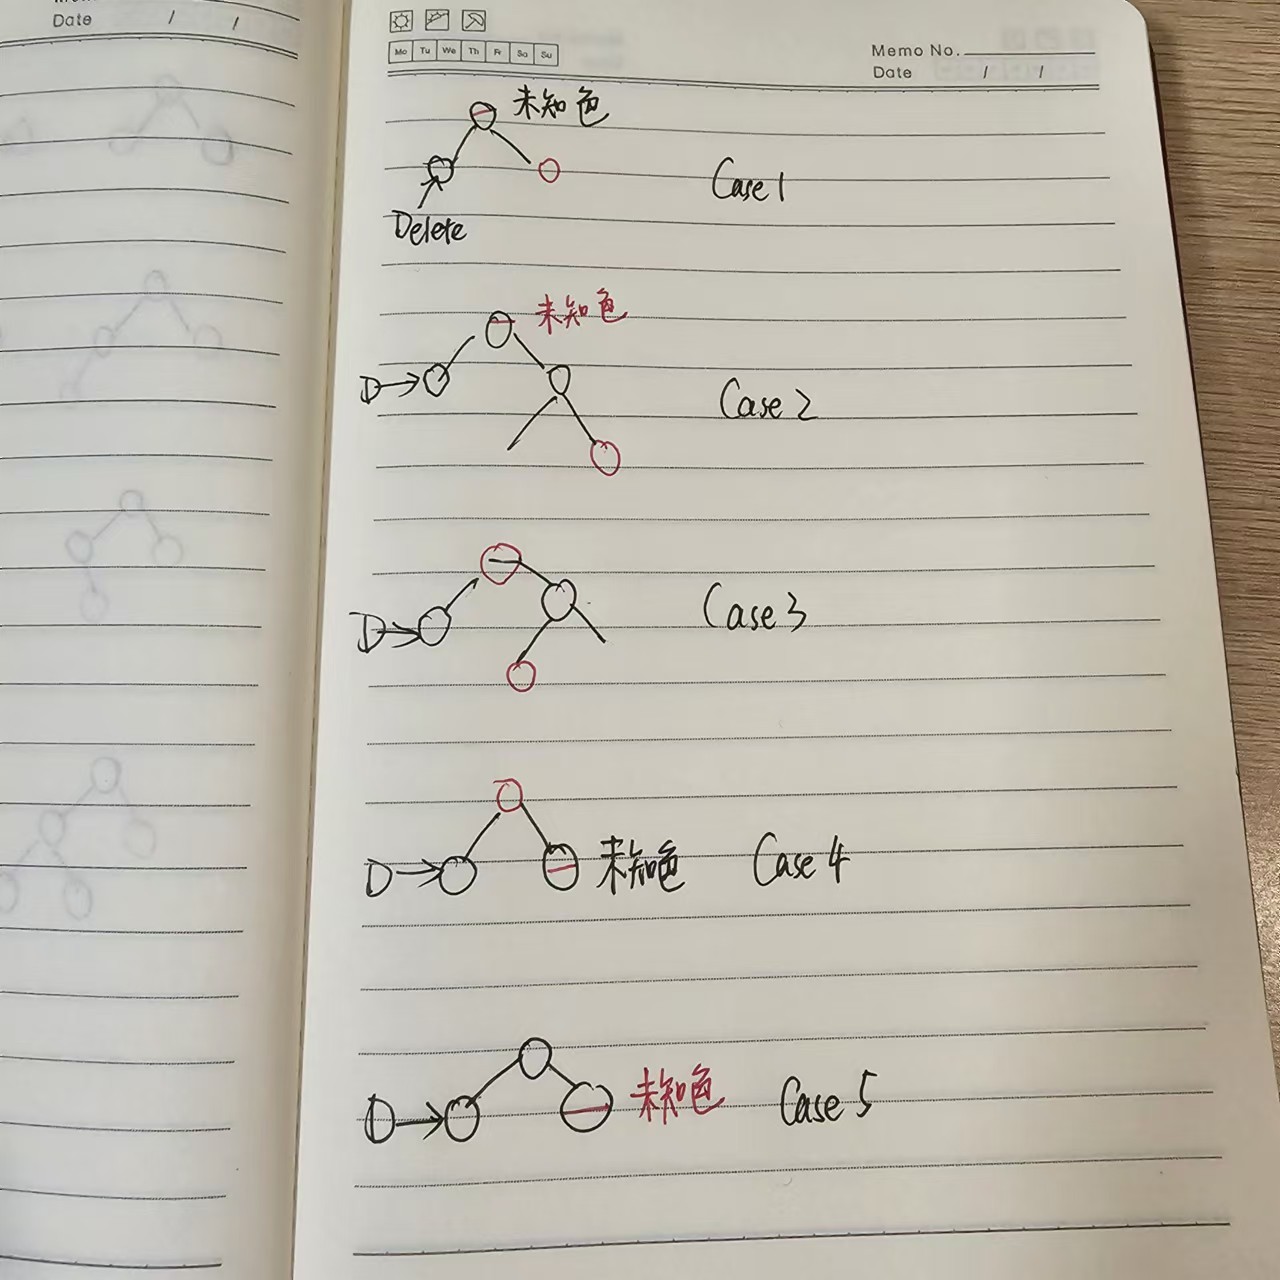 Date / /
Mo Tu We Th Fr Sa Su
Memo No.
Date / /
未知色
Case 1
Delete
未知色
D
Case 2
D
Case 3
D
未知色
Case 4
D
未知色
Case 5